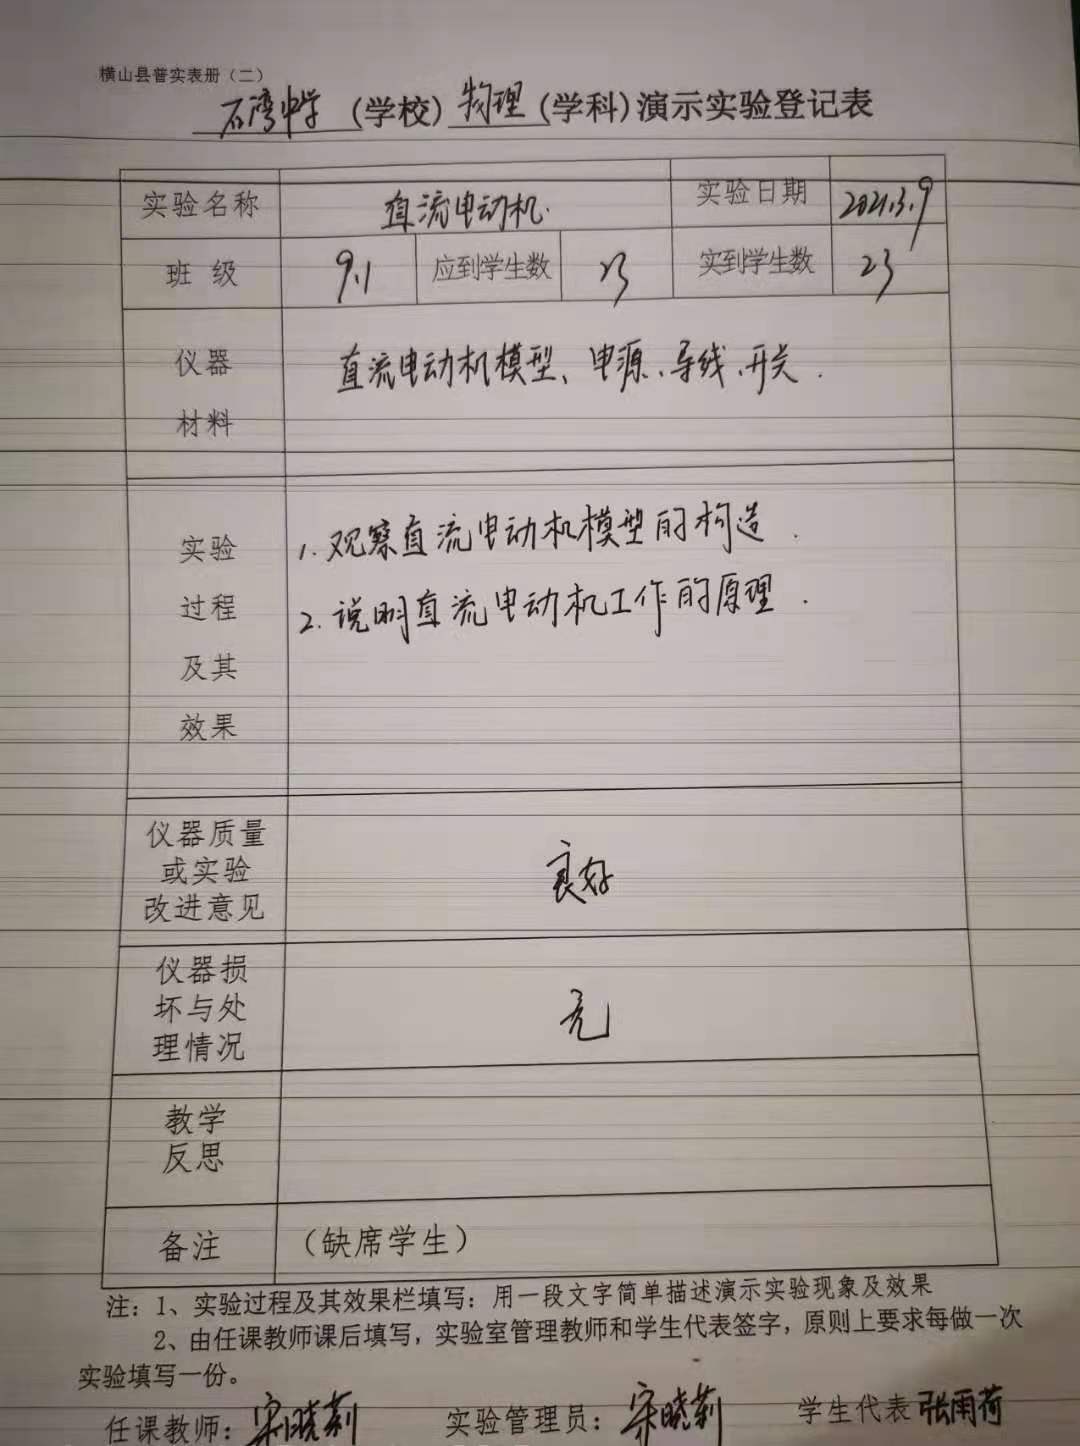 横山县普实表册（二）
石湾中学（学校）物理（学科）演示实验登记表
实验名称 直流电动机. 实验日期 2021.3.9
班级 9.1 应到学生数 23 实到学生数 23
仪器
材料
直流电动机模型、电源、导线、开关.
实验
过程
及其
效果
1.观察直流电动机模型的构造.
2.说明直流电动机工作的原理.
仪器质量
或实验
改进意见
良好
仪器损
坏与处
理情况
无
教学
反思
备注 （缺席学生）
注：1、实验过程及其效果栏填写：用一段文字简单描述演示实验现象及效果
2、由任课教师课后填写，实验室管理教师和学生代表签字，原则上要求每做一次
实验填写一份。
任课教师：宋晓莉 实验管理员：宋晓莉 学生代表 张雨荷